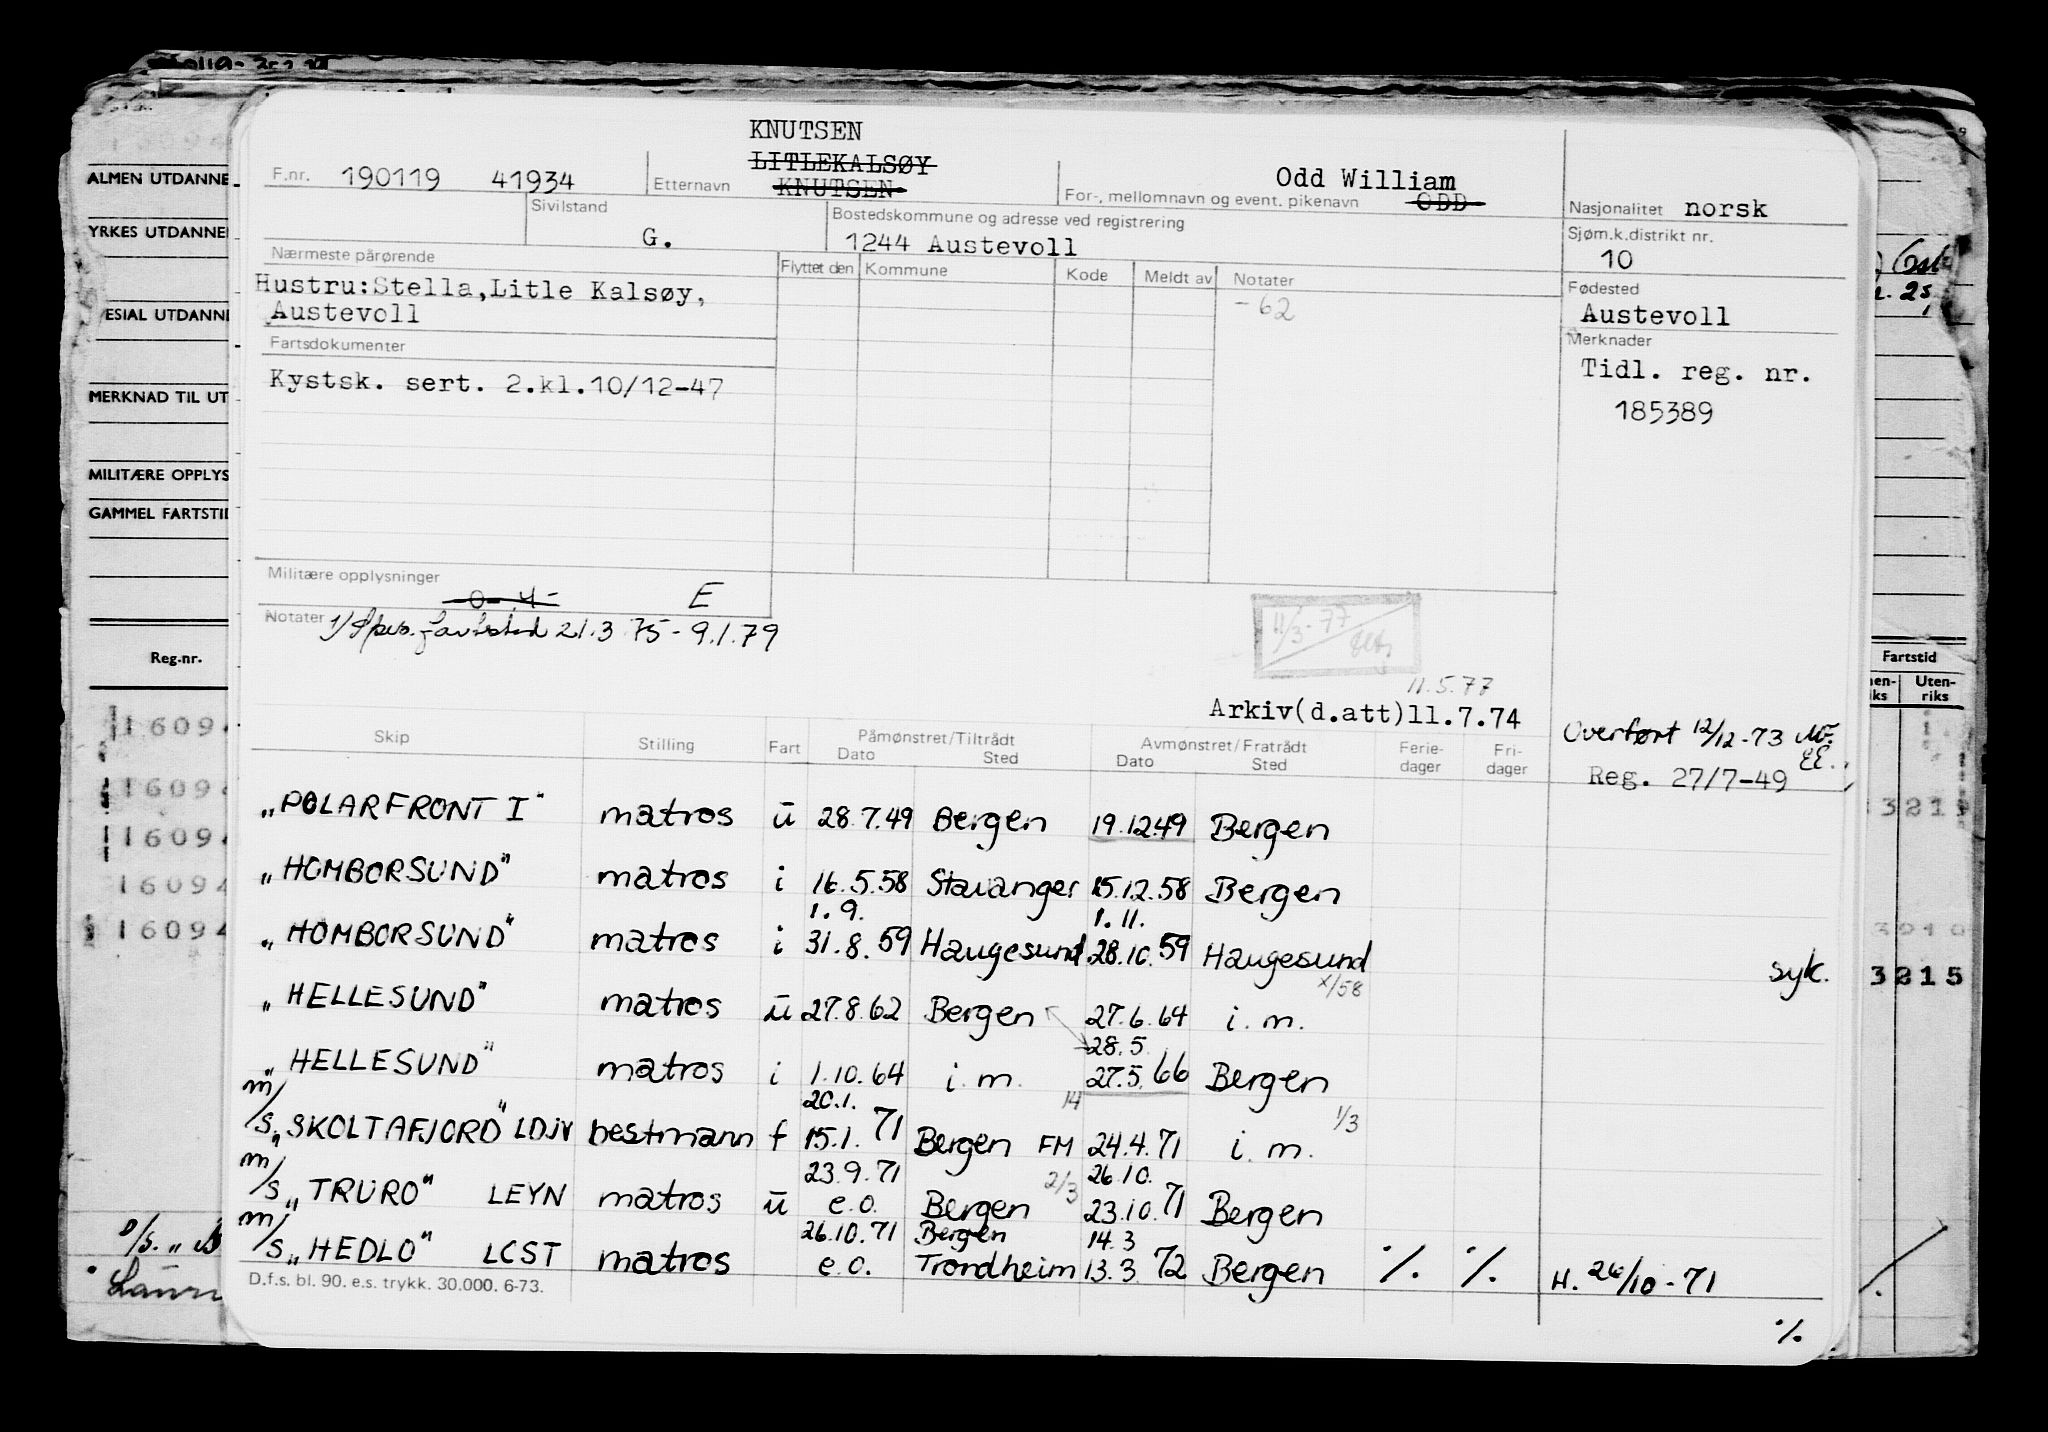 KNUTSEN
LITLEKALSØY
F.nr. 190119 41934 Etternavn KNUTSEN For-, mellomnavn og event. pikenavn Odd William ODD Nasjonalitet norsk
Sivilstand G. Bostedskommune og adresse ved registrering 1244 Austevoll Sjøm.k.distrikt nr. 10
Nærmeste pårørende Flyttet den Kommune Kode Meldt av Notater Fødested
Hustru:Stella,Litle Kalsøy, -62 Austevoll
Austevoll
Fartsdokumenter Merknader
Kystsk. sert. 2.kl.10/12-47 Tidl. reg. nr.
185389
Militære opplysninger E
Notater 21.3 75 - 9.1.79
11/3-77
11.5.77
Arkiv(d.att)11.7.74
Overført 12/12-73
Reg. 27/7-49
Skip Stilling Fart Påmønstret/Tiltrådt Avmønstret/Fratrådt Ferie- Fri-
Dato Sted Dato Sted dager dager
"POLARFRONT I" matros u 28.7.49 Bergen 19.12.49 Bergen
"HOMBORSUND" matros i 16.5.58 Stavanger 15.12.58 Bergen
1.9. 1.11.
"HOMBORSUND" matros i 31.8.59 Haugesund 28.10.59 Haugesund syk.
x/58
"HELLESUND" matros u 27.8.62 Bergen 27.6.64 i.m.
28.5.
"HELLESUND" matros i 1.10.64 i.m. 27.5.66 Bergen
20.1. 14 1/3
m/s "SKOLTAFJORD" LDJV bestmann f 15.1.71 Bergen FM 24.4.71 i.m.
23.9.71 2/3 26.10.
m/s "TRURO" LEYN matros u e.o. Bergen 23.10.71 Bergen
26.10.71 Bergen 14.3
m/s "HEDLO" LCST matros e.o. Trondheim 13.3.72 Bergen % % H. 26/10-71
D.f.s. bl. 90. e.s. trykk. 30.000. 6-73.
%
ALMEN UTDANNE
YRKES UTDANNE
ESIAL UTDANNE
MERKNAD TIL UT
MILITÆRE OPPLYS
GAMMEL FARTSTID
Reg.-nr.
16094
16094
16094
16094
16094
Fartstid
Uten-
riks
3215